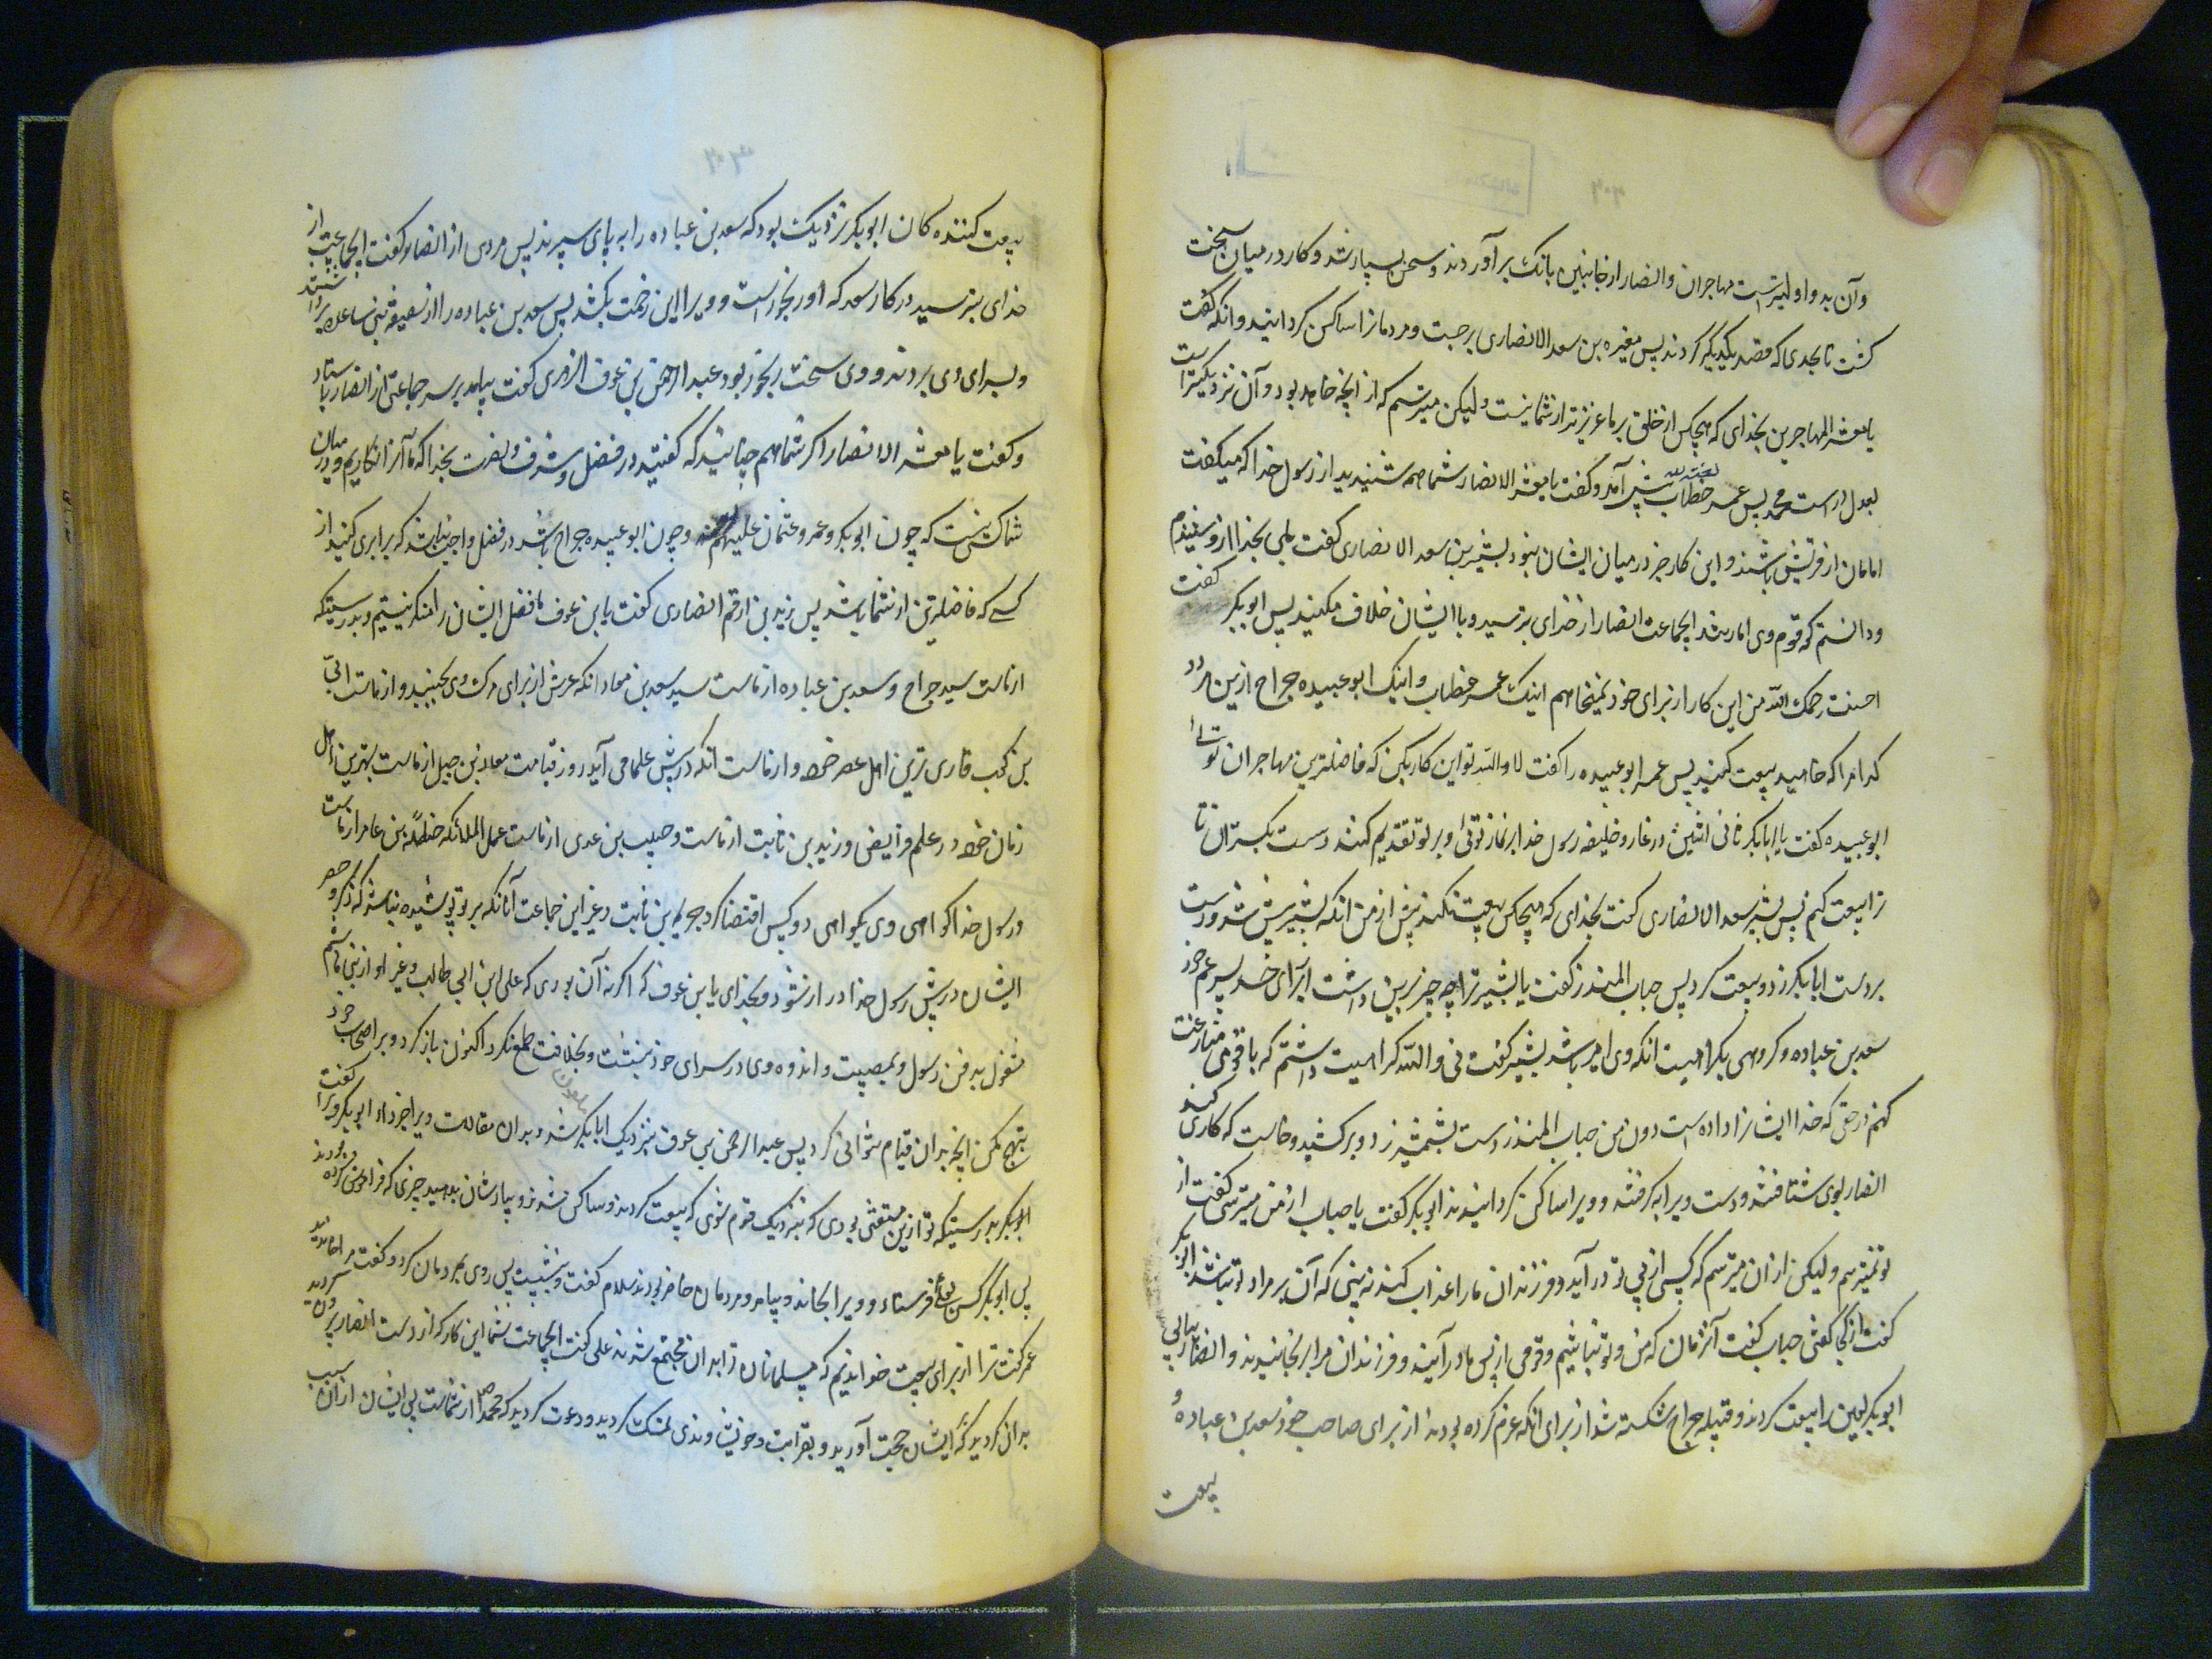 وآن بد و اولیترست مهاجران وانصار از جانبین بانک برآوردند و سخن بسیار شد و کار در میان سخت
کشت تا بحدی که قصد یکدیگر کردند پس مغیره بن سعد الانصاری برجست و مردمانرا ساکن کردانید وانکه کفت
یا معشر المهاجرین بخدای که هیچکس از خلق بر ما عزیزتر از شما نیست ولیکن میترسم که از انچه خواهد بود و آن نزدیکتراست
پس عمر خطاب لعنة الله پیش آمد و کفت یا معشر الانصار شما همه شنیدید از رسول خدا که میکفت
امامان از قریش باشند و این کار جز در میان ایشان نبود بشیر بن سعد الانصاری کفت بلی بخدا از و شنیدم
ودانستم که قوم وی ایجماعت انصار از خدای بترسید و با ایشان خلاف مکنید پس ابوبکر کفت
احسنت رحمک الله من این کار از برای خود نمیخواهم اینک عمر خطاب و اینک ابو عبیده جراح ازین هر دو
کدام را که خواهید بیعت کنید پس عمر ابو عبیده را کفت لا والله تو این کار بکن که فاضلترین مهاجران توئی
ابو عبیده کفت یا ابابکر ثانی اثنین در غار و خلیفه رسول خدا بر نماز توئی و بر تو تقدیم کنند دست بکستران تا
ترا بیعت کنم پس بشیر سعد الانصاری کفت بخدای که هیچکس بیعت نکند پیش از من انکه بشیر پیش شد و دست
بر دست ابابکر زد و بیعت کرد پس حباب المنذر کفت یا بشیر ترا چه چیز برین داشت از برای حسد پسر عم خود
سعد بن عباده و کروهی بکراهیت انکه وی امیر باشد بشیر کفت نی والله کراهیت داشتم که با قومی منازعت
کنم در حقی که خدا ایشانرا داده است دون من حباب المنذر دست بشمشیر زد و برکشید و خواست که کاری کند
انصار بوی شتافتند و دست ویرا بکرفتند و ویرا ساکن کردانیدند ابوبکر کفت یا حباب از من میترسی کفت از
تو نمیترسم ولیکن از آن میترسم که کسی از پی تو درآید و فرزندان ما را عذاب کند نه بینی که آن بر مراد تو نباشد ابوبکر
کفت از کجا کفتی حباب کفت آنزمان که من و تو نباشیم و قومی از پس ما درآیند و فرزندان مرا برنجانیدند و انصار بیاپی
ابوبکر لعین را بیعت کردند و قبیله جراح شکسته شد از برای انکه عزم کرده بودند از برای صاحب خود سعد بن عباده
بیعت
بیعت کننده کان ابوبکر نزدیک بود که سعد بن عباده را به پای سپرند پس مردی از انصار کفت ایجماعت از
خدای بترسید در کار سعد که او رنجور است و ویرا این زحمت بکشد پس سعد بن عباده را از سقیفه بنی ساعده برداشتند
و بسرای وی بردند و وی سخت رنجور بود عبد الرحمن بن عوف الزهری کفت بیامد بر سر جماعتی از انصار باستاد
و کفت یا معشر الانصار اکر شما هم چنانید که کفتید در فضل و شرف و نصرت بخدا که ما آنرا انکار نکنیم و در میان
شما کسی نیست که چون ابوبکر و عمر و عثمان علیهم و چون ابو عبیده جراح باشد در فضل و واجب نباشد که برابری کنید از
کسی که فاضلترین از شما باشد پس زید بن ارقم انصاری کفت یا بن عوف ما فضل ایشان را منکر نیستیم و بدرستیکه
از ماست سید جراح و سعد بن عباده از ماست سید سعد بن معاد انکه عرش از برای مرک وی بجنبید و از ماست ابی
بن کعب قاری ترین اهل عصر خود و از ماست انکه در پیش علما می آید روز قیامت معاد بن جبل از ماست بهترین اهل
زمان خود در علم فرایض و زید بن ثابت از ماست و حبیب بن عدی از ماست غسل الملائکه حنظلة بن عامر از ماست
و رسول خدا کواهی وی بکواهی دو کس اقتضا کرد بن ثابت و غیر این جماعت آنانکه بر تو پوشیده نباشد که ذکر و حصر
ایشان در پیش رسول خدا دراز شود و بخدای یا بن عوف که اکر نه آن بودی که علی ابن ابی طالب و غیر او از بنی هاشم
مشغول بدفن رسول و بمصیبت و اندوه وی در سرای خود بنشست و بخلافت طمع نکرد اکنون باز کرد و بر اصحاب خود
تهیج مکن انچه بدان قیام نتوانی کرد پس عبد الرحمن بن عوف بنزدیک ابابکر ملعون شد و بدان مقالت ویرا خبر داد ابوبکر ویرا کفت
ابوبکر بدرستیکه تو ازین مستغنی بودی که بنزدیک قوم شوی که بیعت کردند و ساکن شدند و بیادشان بدهید چیزی که فراموش کرده بودند
پس ابوبکر کس بعلی فرستاد و ویرا بخواند و بیامد و مردمان حاضر بودند سلام کفت و بنشست پس روی بمردمان کرد و کفت مرا خواندید
عمر کفت ترا از برای بیعت خواندیم که مسلمانان بدان مجتمع شدند علی کفت ایجماعت شما این کار که از دست انصار بیرون کردید
بدانکردید که بایشان حجت آوردید و بقرابت و خویشاوندی تمسک کردید و دعوت کردید که محمد از شماست پس ایشان از آن سبب